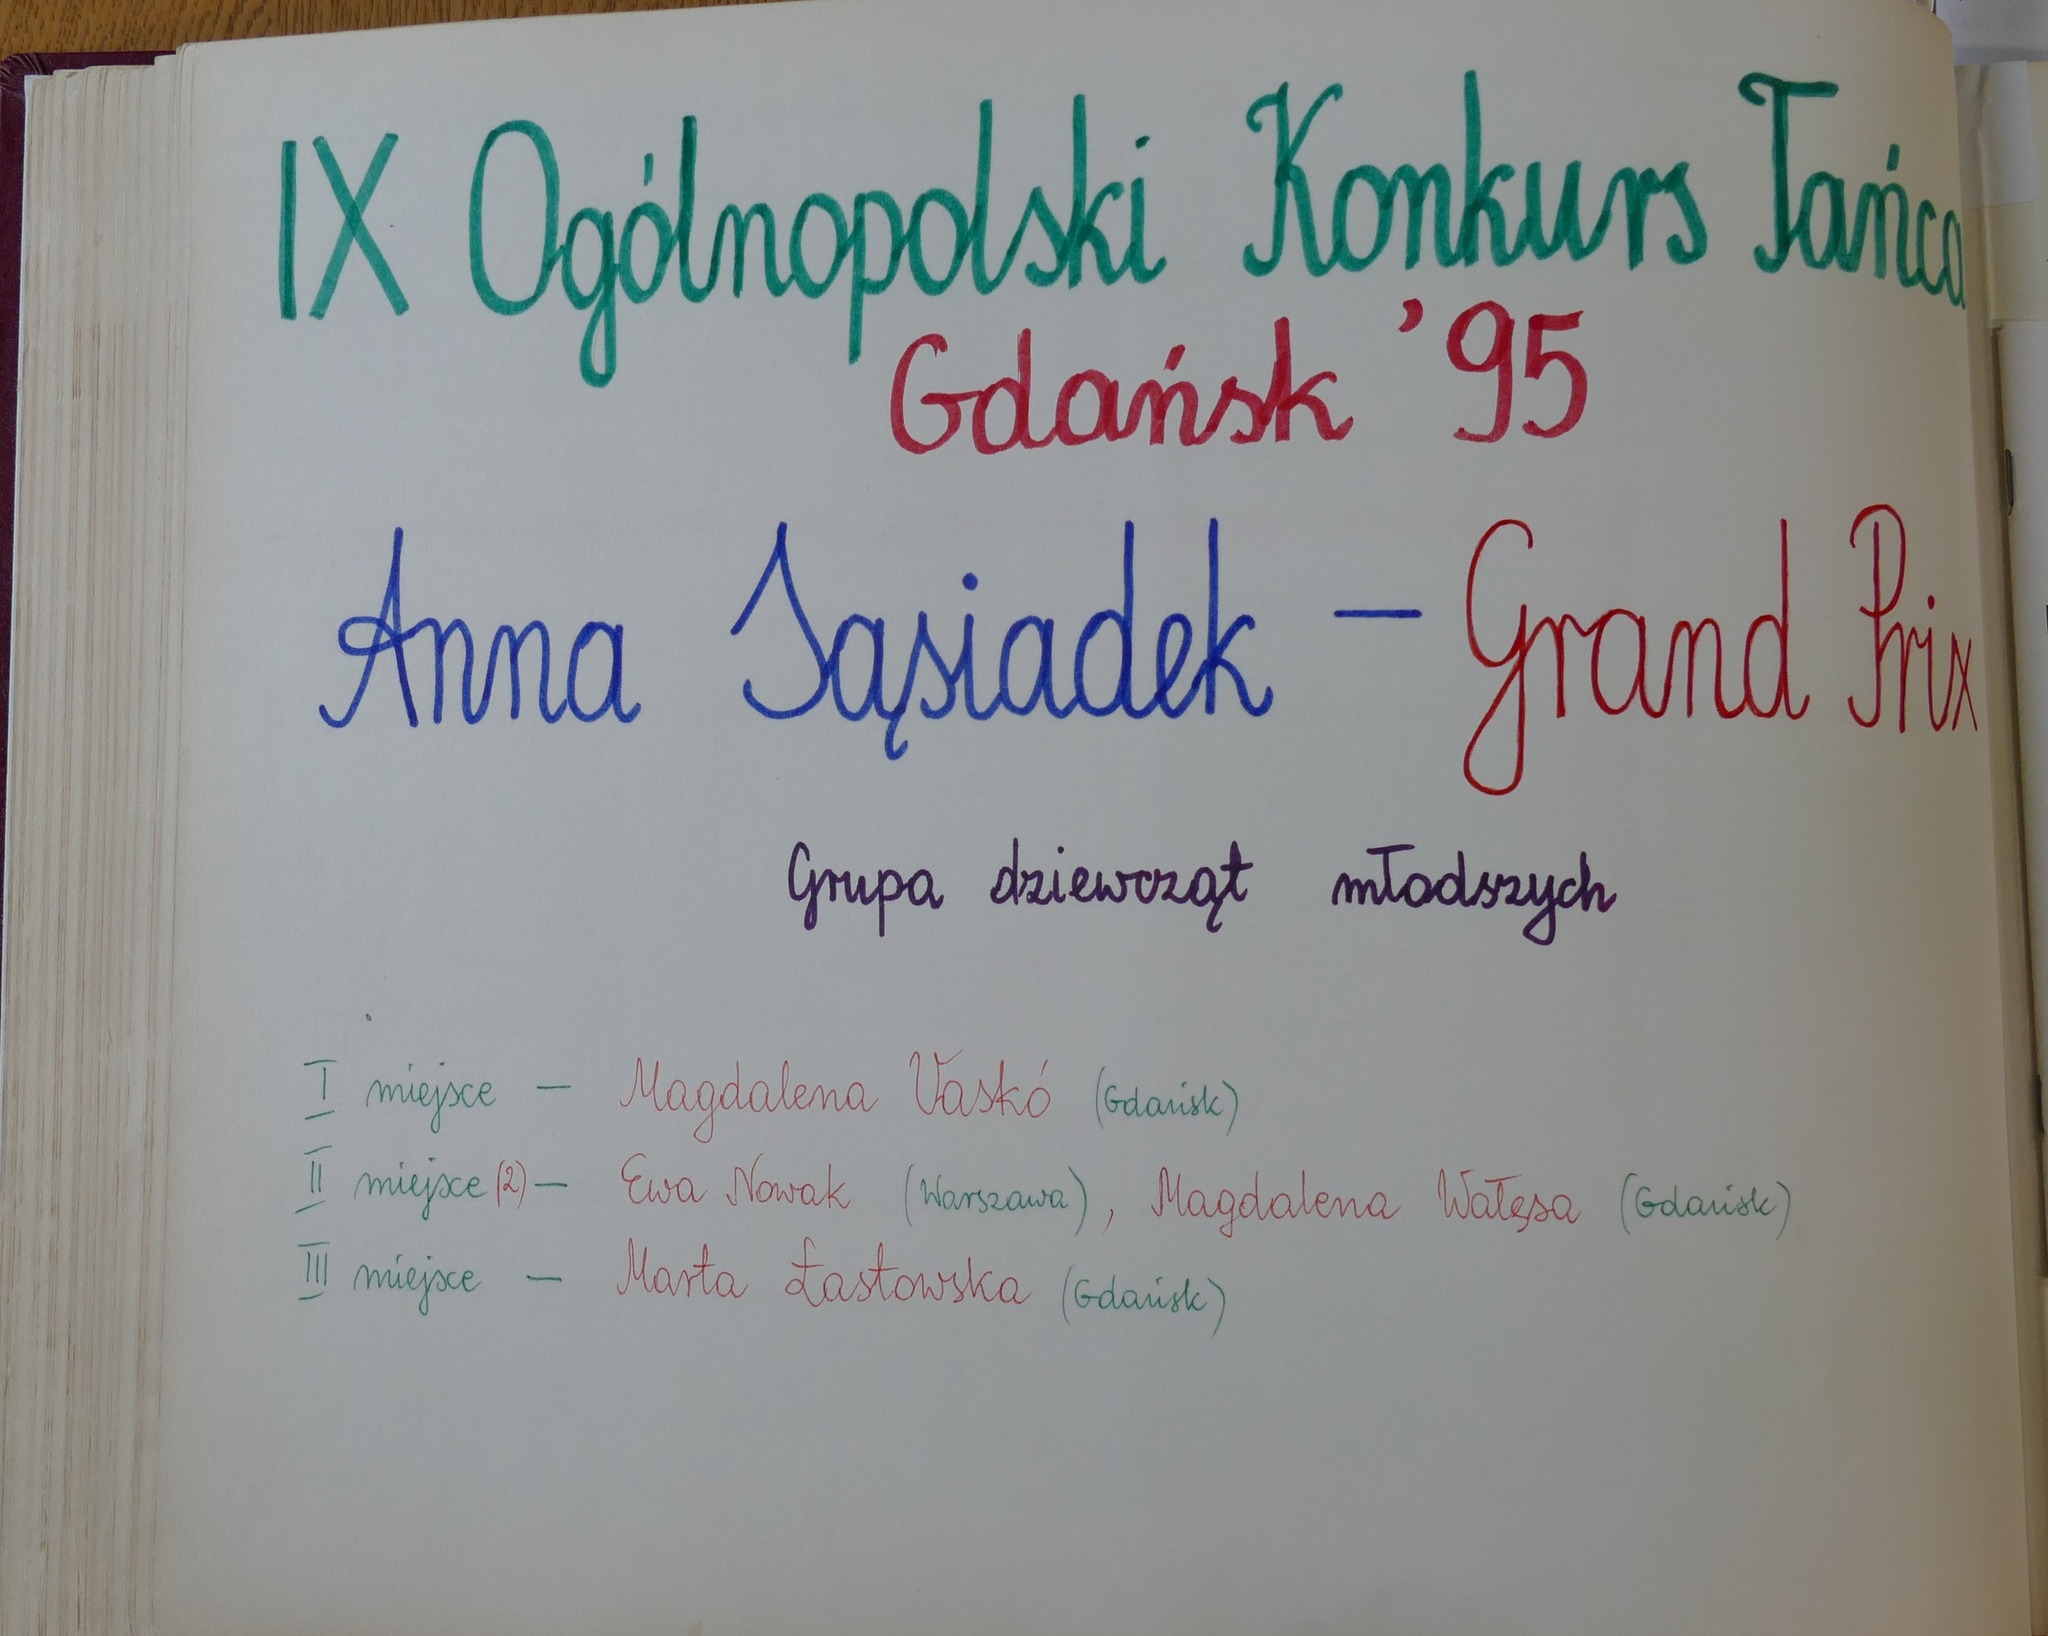 IX Ogólnopolski Konkurs Tańca
Gdańsk '95
Anna Sąsiadek – Grand Prix
Grupa dziewcząt młodszych
I miejsce – Magdalena Vaskó (Gdańsk)
II miejsce (2) – Ewa Nowak (Warszawa), Magdalena Wałęsa (Gdańsk)
III miejsce – Marta Łastowska (Gdańsk)